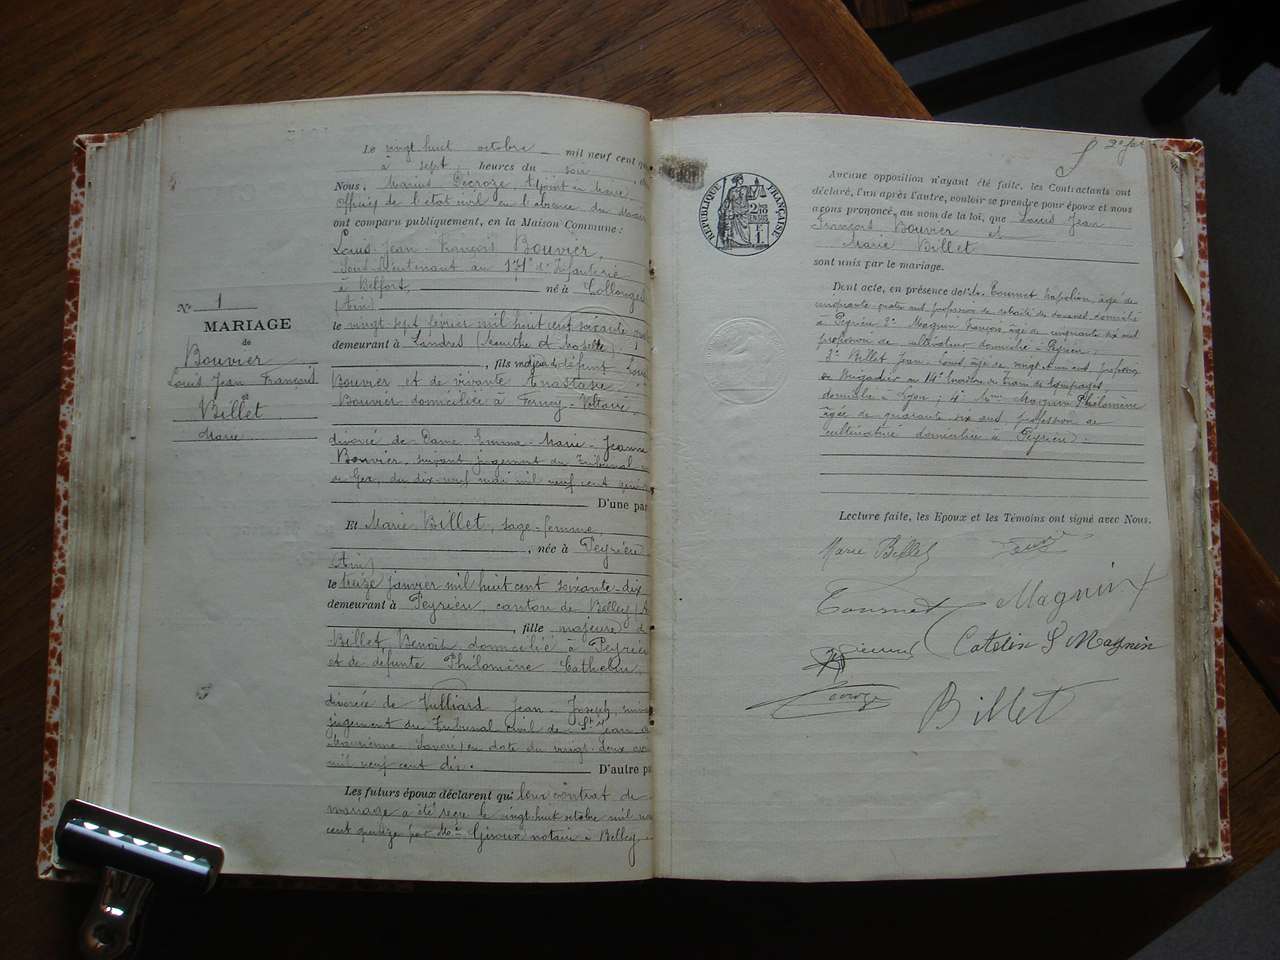 Le vingt huit octobre mil neuf cent
à sept heures du soir
Nous, Marius Décroze Adjoint au Maire
Officier de l'état civil en l'absence du Maire
ont comparu publiquement, en la Maison Commune :
Louis Jean François Bouvier,
Sous-Lieutenant au 171e d'Infanterie
à Belfort, né à Collonges
(Ain)
le vingt sept février mil huit cent soixante
demeurant à Landres (Meurthe et Moselle)
, fils majeur de défunt Louis
Bouvier et de vivante Anastasie
Bouvier domiciliée à Ferney-Voltaire
divorcé de Dame Emma-Marie-Jeanne
Bouvier, suivant jugement du Tribunal
de Gex, du dix-neuf mai mil neuf cent
D'une par
Et Marie Billet, sage-femme
, née à Peyrieu
(Ain)
le treize janvier mil huit cent soixante-dix
demeurant à Peyrieu, canton de Belley
, fille majeure d
Billet Benoît domicilié à Peyrieu
et de défunte Philomène Cathelin
divorcée de Vulliard Jean-Joseph, suiv
jugement du Tribunal civil de St Jean d
Maurienne (Savoie) en date du vingt-deux
mil neuf cent dix. D'autre pa
Les futurs époux déclarent qu' leur contrat de
mariage a été reçu le vingt-huit octobre mil n
cent quinze par Me Giroux notaire à Belley
No 1
MARIAGE
de
Bouvier
Louis Jean François
et
Billet
Marie
2e fet
RÉPUBLIQUE FRANÇAISE
Aucune opposition n'ayant été faite, les Contractants ont
déclaré, l'un après l'autre, vouloir se prendre pour époux et nous
avons prononcé, au nom de la loi, que Louis Jean
François Bouvier et
Marie Billet
sont unis par le mariage.
Dont acte, en présence de 1° Tournet Napoléon, âgé de
cinquante quatre ans profession de retraité des douanes domicilié
à Peyrieu 2° Magnin François âgé de cinquante six ans
profession de cultivateur domicilié à Peyrieu;
3° Billet Jean-Louis âgé de vingt et un ans, profession
de Brigadier au 14e Escadron du train des équipages,
domicilié à Lyon; 4° Mme Magnin Philomène
âgée de quarante six ans, profession de
cultivatrice domiciliée à Peyrieu.
Lecture faite, les Epoux et les Témoins ont signé avec Nous.
Marie Billet
Tournet Magnin
Catelin F Magnin
Billet